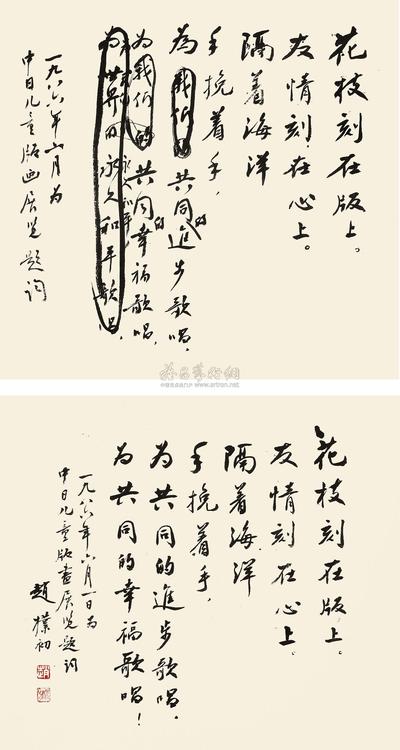 花枝刻在版上。
友情刻在心上。
隔着海洋
手挽着手，
为我们的共同的進步歌唱，
为我们的共同的幸福歌唱，
为世界的永久和平歌唱，
一九八六年六月为
中日儿童版画展览题词
www.artron.net
花枝刻在版上。
友情刻在心上。
隔着海洋
手挽着手，
为共同的進步歌唱。
为共同的幸福歌唱！
一九八六年六月一日为
中日儿童版畫展览题词
趙樸初